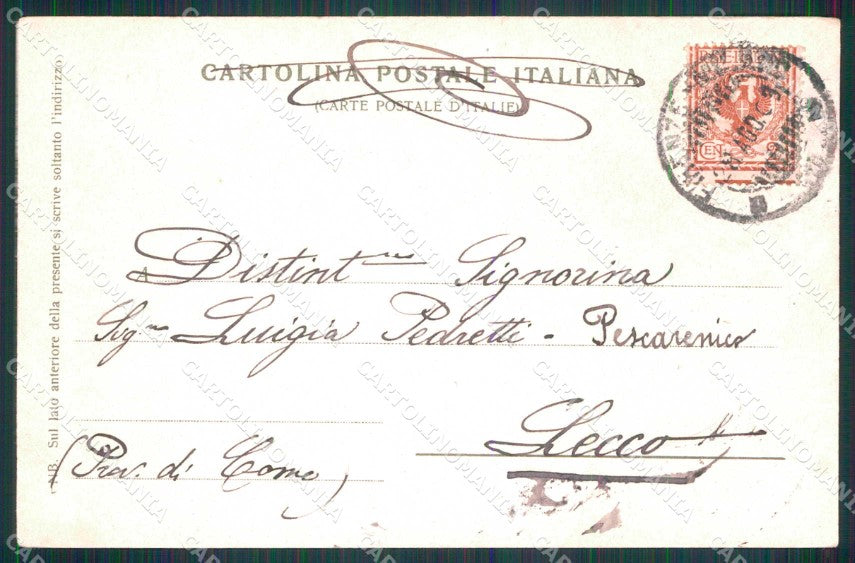 CARTOLINA POSTALE ITALIANA
(CARTE POSTALE D'ITALIE)
A Distint.me Signorina
Sig.na Luigia Pedretti - Pescarenico
Lecco
(Prov. di Como)
NB. Sul lato anteriore della presente si scrive soltanto l'indirizzo.
FIRENZE
CARTOLINOMANIA